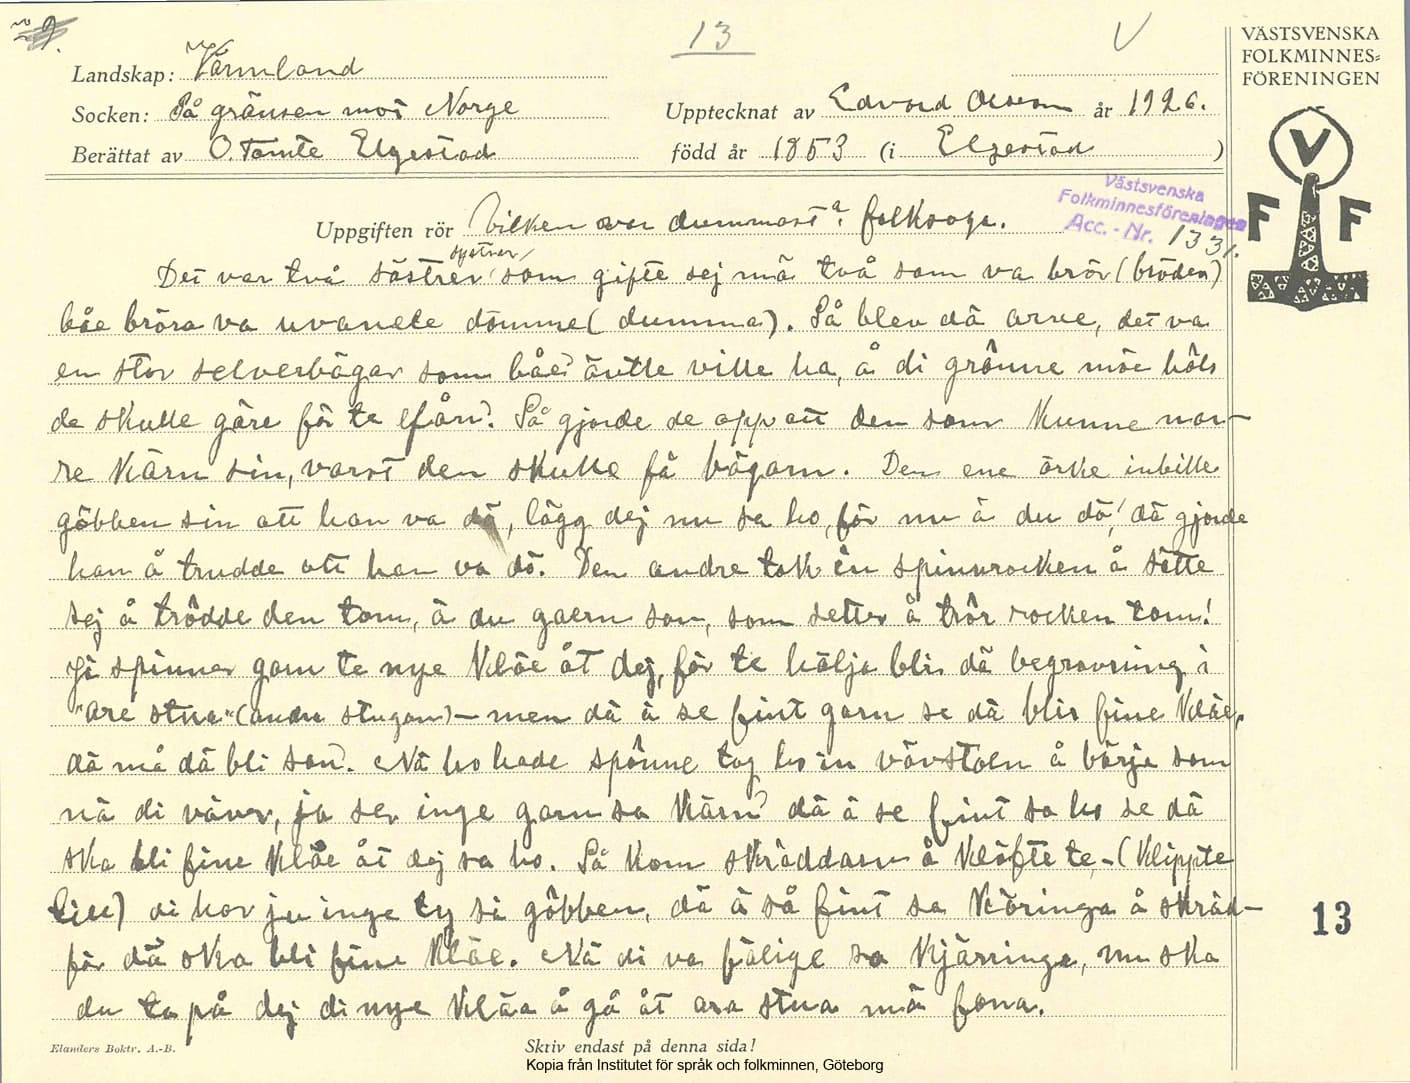 13
V
VÄSTSVENSKA
FOLKMINNES=
FÖRENINGEN
Landskap: Värmland
Socken: På gränsen mot Norge
Upptecknat av Edvard Olsson år 1926.
Berättat av O. Tomte Elgestad född år 1853 (i Elgestad)
Västsvenska
Folkminnesföreningen
Acc. - Nr. 1331.
V F F
Uppgiften rör Vilken var dummast? folksaga.
systrar
Det var två såstrer som gifte sej mä två som va brör (bröder)
båe bröra va uvanele domme (dumma). Så blev dä arve, det va
en stor selverbägar som båe äntle ville ha, å di grônne möe hôls
de skulle göre för te få'n. Så gjorde de opp att den som kunne nar-
re kärn sin, varst den skulle få bägarn. Den ene örke inbille
göbben sin att han va dö, lägg dej nu sa ho, för nu ä du dö, dä gjorde
han å trudde att han va dö. Den andre tok in spinnrocken å sötte
sej å trôdde den tom, ä du gaern san, som setter å trôr rocken tom!
Ja spinner garn te nye kläe åt dej, för te hälja blir dä begravning i
"are stua" (andra stugan) – men dä ä se fint garn se dä blir fine kläe,
dä må dä bli san. Nä ho hade spônne tog ho in vävstoln å börja som
nä di väver, ja ser inge garn sa kärn dä ä se fint sa ho se dä
ska bli fine kläe åt dej sa ho. Så kom skräddarn å klöfte te – (klippte
till) di har ju inge ty sa göbben, dä ä så fint sa käringa å skräd-
för dä ska bli fine kläe. Nä di va fälige sa kjärringa, nu ska
du ta på dej di nye kläa å gå åt ara stua mä fona.
13
Elanders Boktr. A.-B.
Skriv endast på denna sida!
Kopia från Institutet för språk och folkminnen, Göteborg